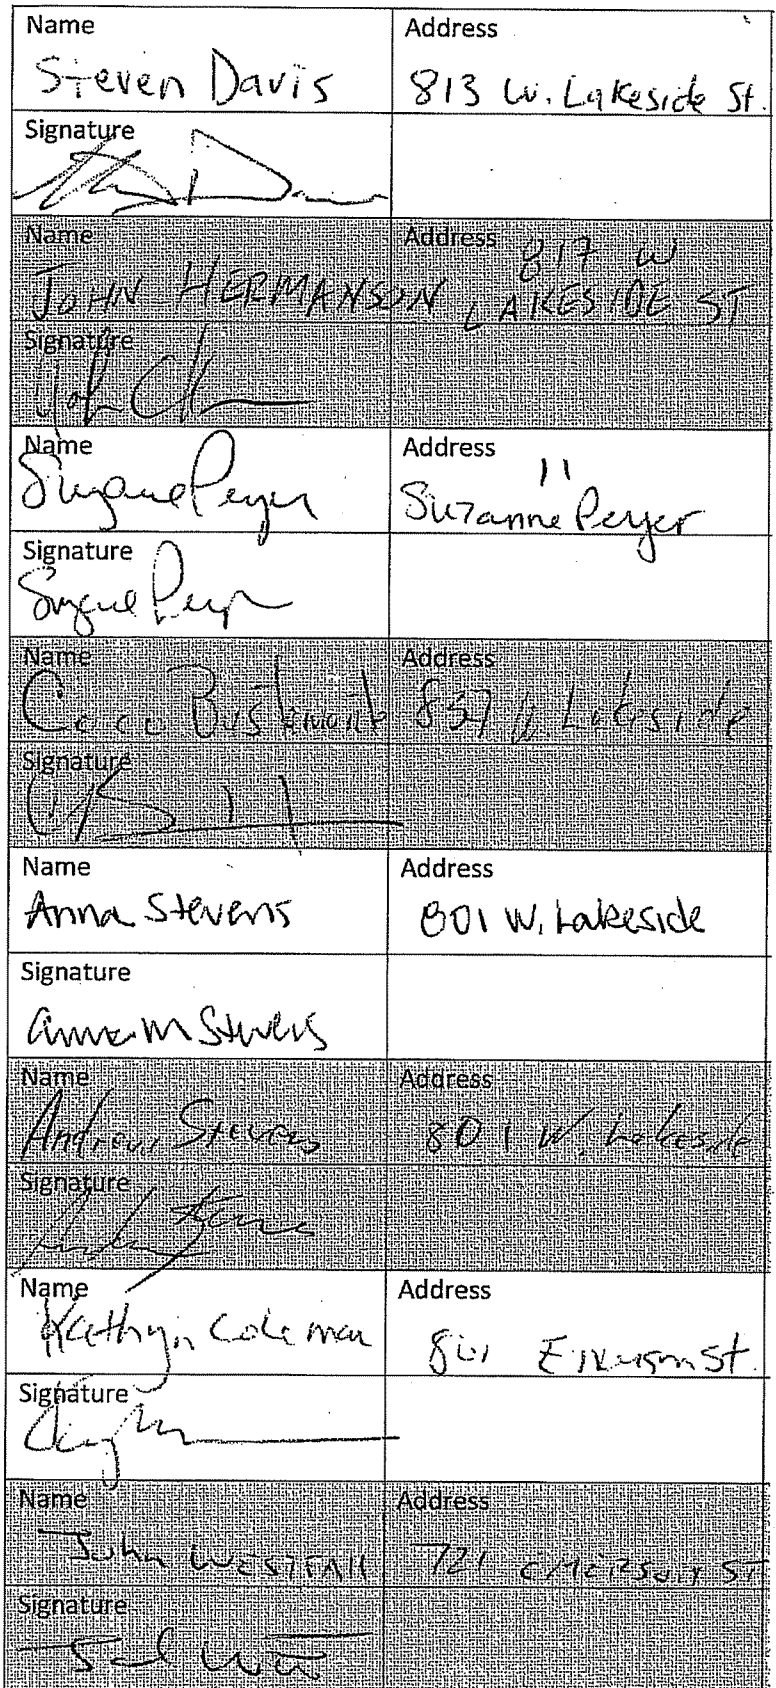 Name Address
Steven Davis 813 W. Lakeside St.
Signature
Name Address 817 W
JOHN HERMANSON LAKESIDE ST
Signature
Name Address
Suzanne Peyer " Suzanne Peyer
Signature
Suzanne Peyer
Name Address
Coco Bustamante 837 W Lakeside
Signature
Name Address
Anna Stevens 801 W. Lakeside
Signature
Anna M Stevens
Name Address
Andrew Stevens 801 W. Lakeside
Signature
Name Address
Kathryn Coleman 801 Emerson St.
Signature
Name Address
John WESTFALL 721 EMERSON ST
Signature